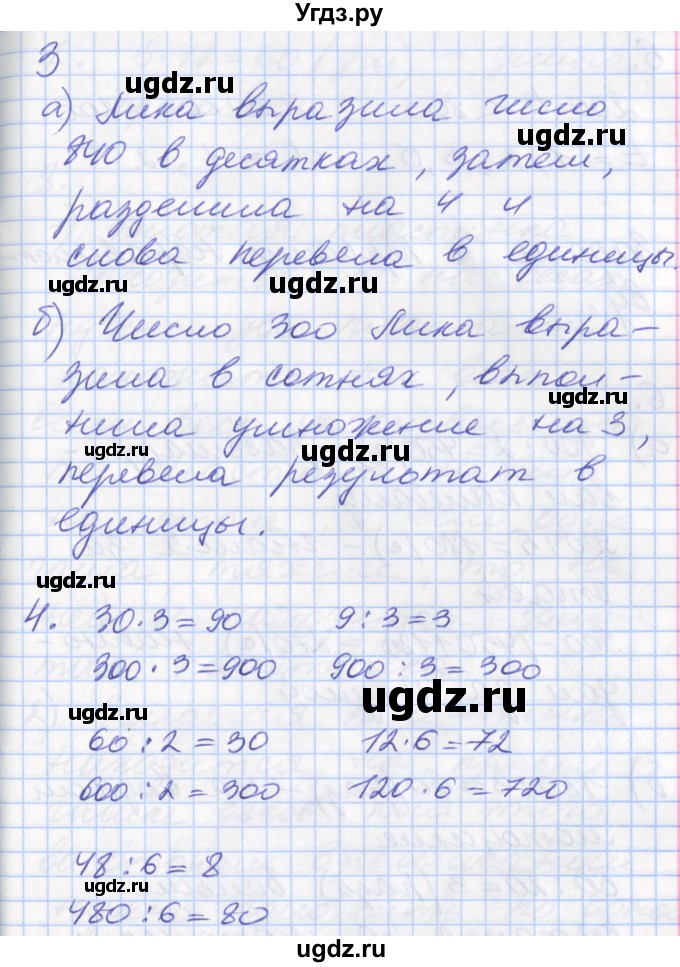 Угдз.ру
3
ugdz.ru
а) Лика выразила число
ugdz.ru
840 в десятках, затем,
ugdz.ru
разделила на 4 и
снова перевела в единицы.
ugdz.ru ugdz.ru
б) Число 300 Лика выра-
зила в сотнях, выпол-
ugdz.ru
нила умножение на 3,
ugdz.ru ugdz.ru
перевела результат в
единицы.
ugdz.ru
4. 30·3=90 9:3=3
300·3=900 900:3=300
ugdz.ru
ugdz.ru
60:2=30 12·6=72
600:2=300 120·6=720
48:6=8
ugdz.ru
480:6=80
ugdz.ru